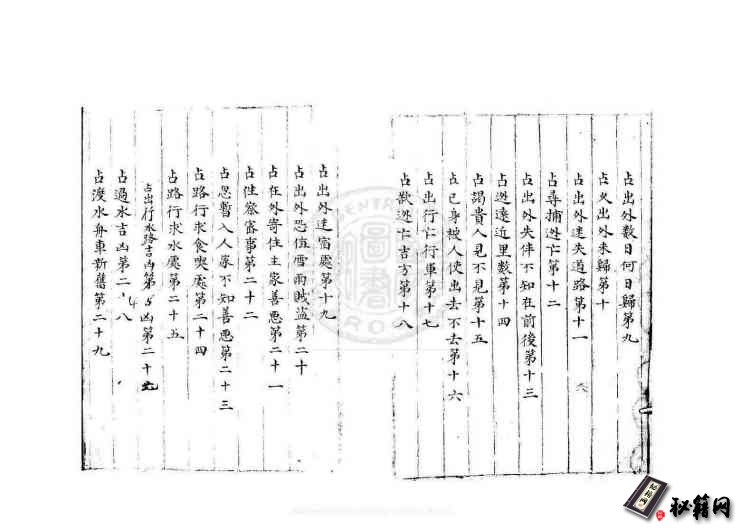 占出外数日何日歸第九
占久出外未歸第十
占出外迷失道路第十一
占尋捕逃亡第十二
占出外失伴不知在前後第十三
占遊遠近里数第十四
占謁貴人見不見第十五
占己身被人使出去不去第十六
占出行亡行軍第十七
占欲逃亡吉方第十八
占出外迷宿處第十九
占出外恐值雪雨賊盗第二十
占在外寄住主家善悪第二十一
占住察審事第二十二
占恩暫入人家不知善悪第二十三
占路行求食喫處第二十四
占路行求水處第二十五
占出行水路吉凶第凶第二十
占過水吉凶第二十八
占渡水舟車新舊第二十九
圖書
秘籍网